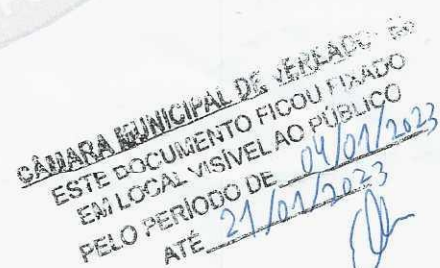 CÂMARA MUNICIPAL DE VEREADORES
ESTE DOCUMENTO FICOU FIXADO
EM LOCAL VISÍVEL AO PÚBLICO
PELO PERÍODO DE 04/01/2023
ATÉ 21/01/2023